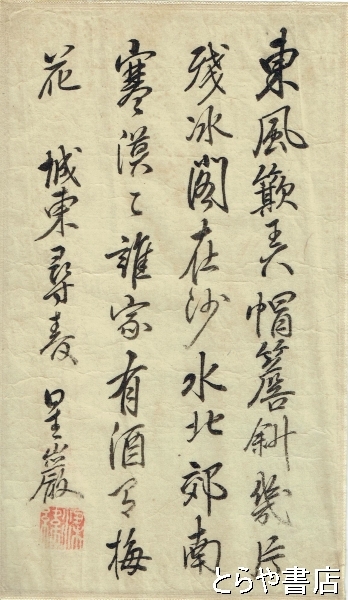 東風簸弄帽簷斜幾片
殘冰閣在沙水北郊南
寒漠〻誰家有酒有梅
花 城東尋春 星巖
とらや書店